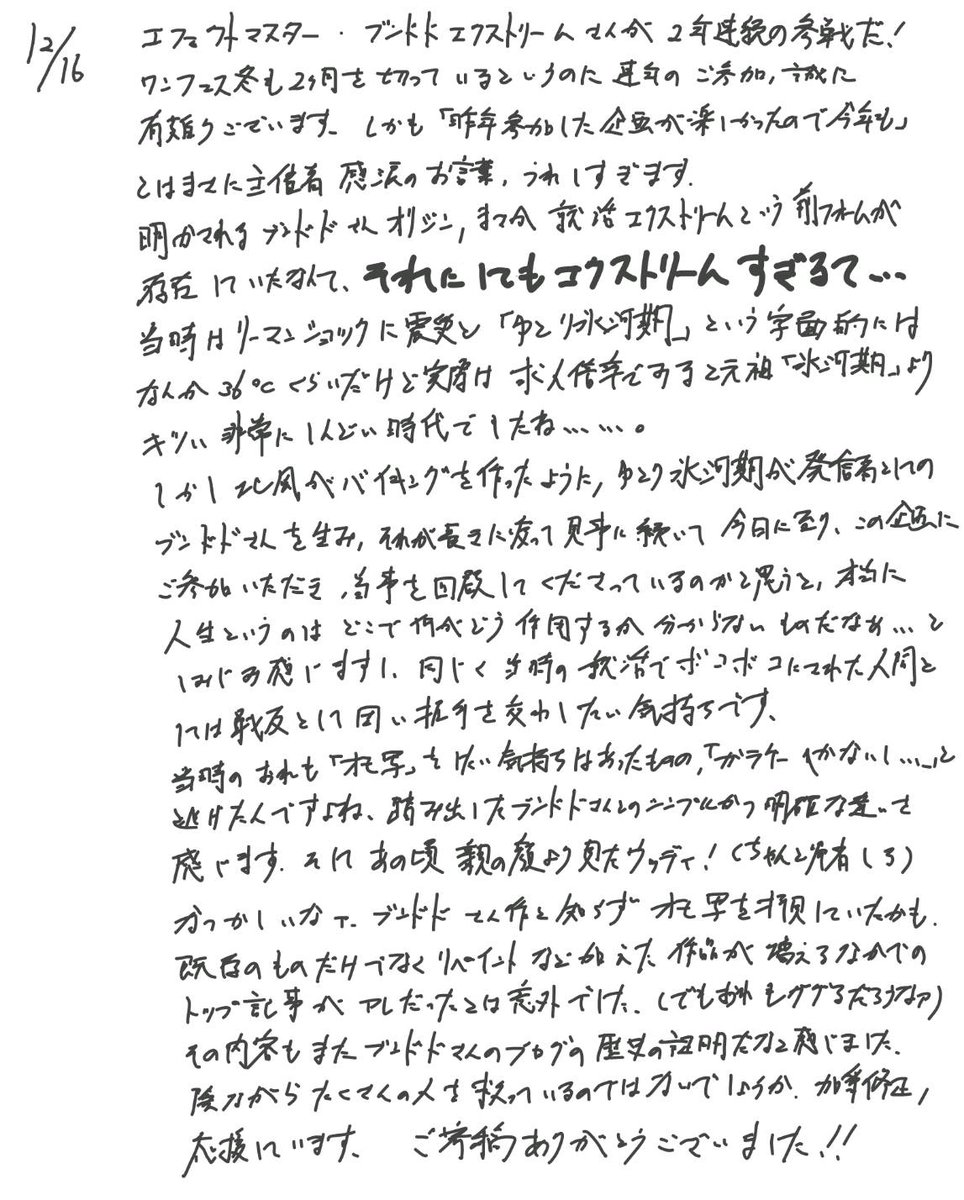 12/16
エフェクトマスター・ブンドドエクストリームさんが2年連続の参戦だ!
ワンフェス冬も2ヶ月を切っているというのに連年のご参加、誠に
有難うございます。しかも「昨年参加した企画が楽しかったので今年も」
とはまさに主催者感涙のお言葉、うれしすぎます。
明かされるブンドドさんオリジン、まさか就活エクストリームという前フォームが
存在していたなんて、それにしてもエクストリームすぎるて…
当時はリーマンショックに震災と「ゆとり氷河期」という字面的には
なんか36℃くらいだけど実際は求人倍率でみると元祖「氷河期」より
キツい非常にしんどい時代でしたね……。
しかし北風がバイキングを作ったように、ゆとり氷河期が発信者としての
ブンドドさんを生み、それが長きに渡って見事に続いて今日に至り、この企画に
ご参加いただき、当事を回顧してくださっているのかと思うと、本当に
人生というのはどこで何がどう作用するか分からないものだなぁ…と
しみじみ感じますし、同じく当時の就活でボコボコにされた人間と
しては戦友として固い握手を交わしたい気持ちです。
当時のおれも「オモ写」をしたい気持ちはあったものの、「ガラケーしかないし…」と
逃げたんですよね、踏み出したブンドドさんとのシンプルかつ明確な違いを
感じます。そしてあの頃親の顔より見たウッディ!(ちゃんと所有しろ)
なつかしいなァ、ブンドドさん作と知らずオモ写を拝見していたかも。
既存のものだけでなくリペイントなど加えた作品が増えるなかでの
トップ記事がアレだったとは意外でした。(でもおれもググるだろうなァ)
その内容もまたブンドドさんのブログの歴史の証明だなと感じました。
陰ながらたくさんの人を救っているのではないでしょうか。加筆修正、
応援しています。 ご寄稿ありがとうございました!!